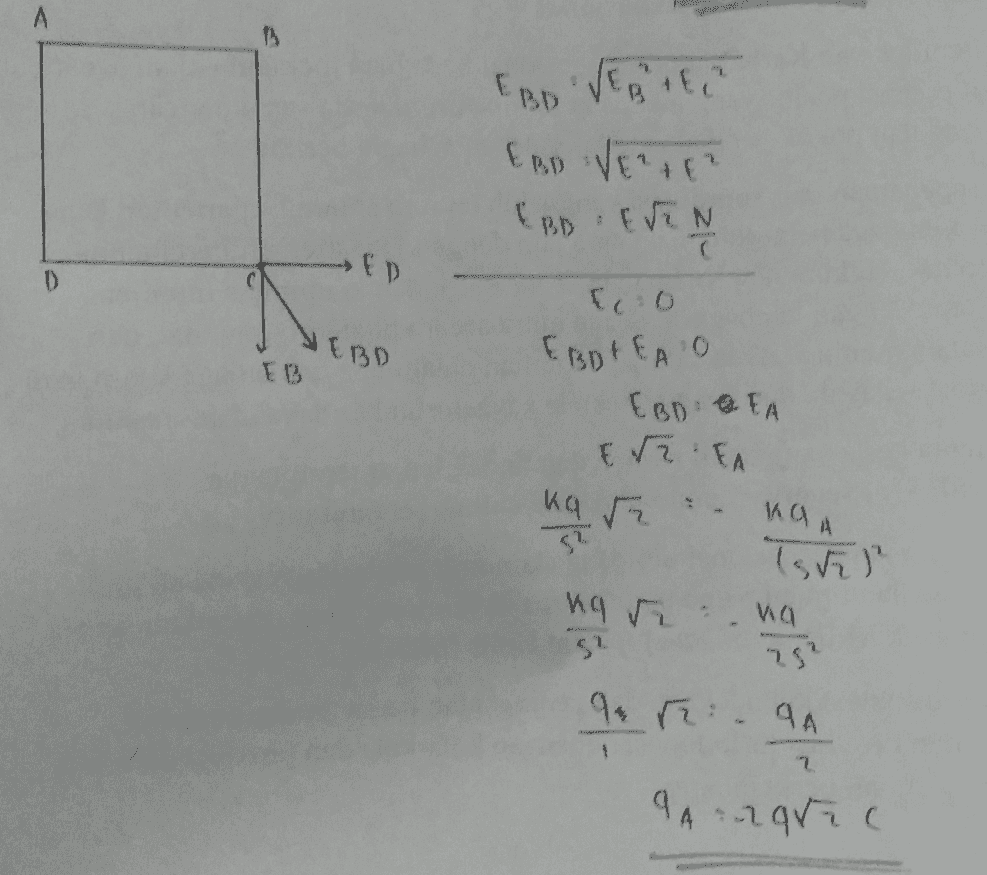 A
B
D
C
E D
E B
E BD
E BD = √E B² + E C²
E BD = √E² + E²
E BD = E √2 N/C
E C = 0
E BD + E A = 0
E BD = E A
E √2 = E A
kq/s² √2 = - kq A/(s√2)²
kq/s² √2 = - kq/2s²
q/1 √2 = - q A/2
q A = -2q√2 C